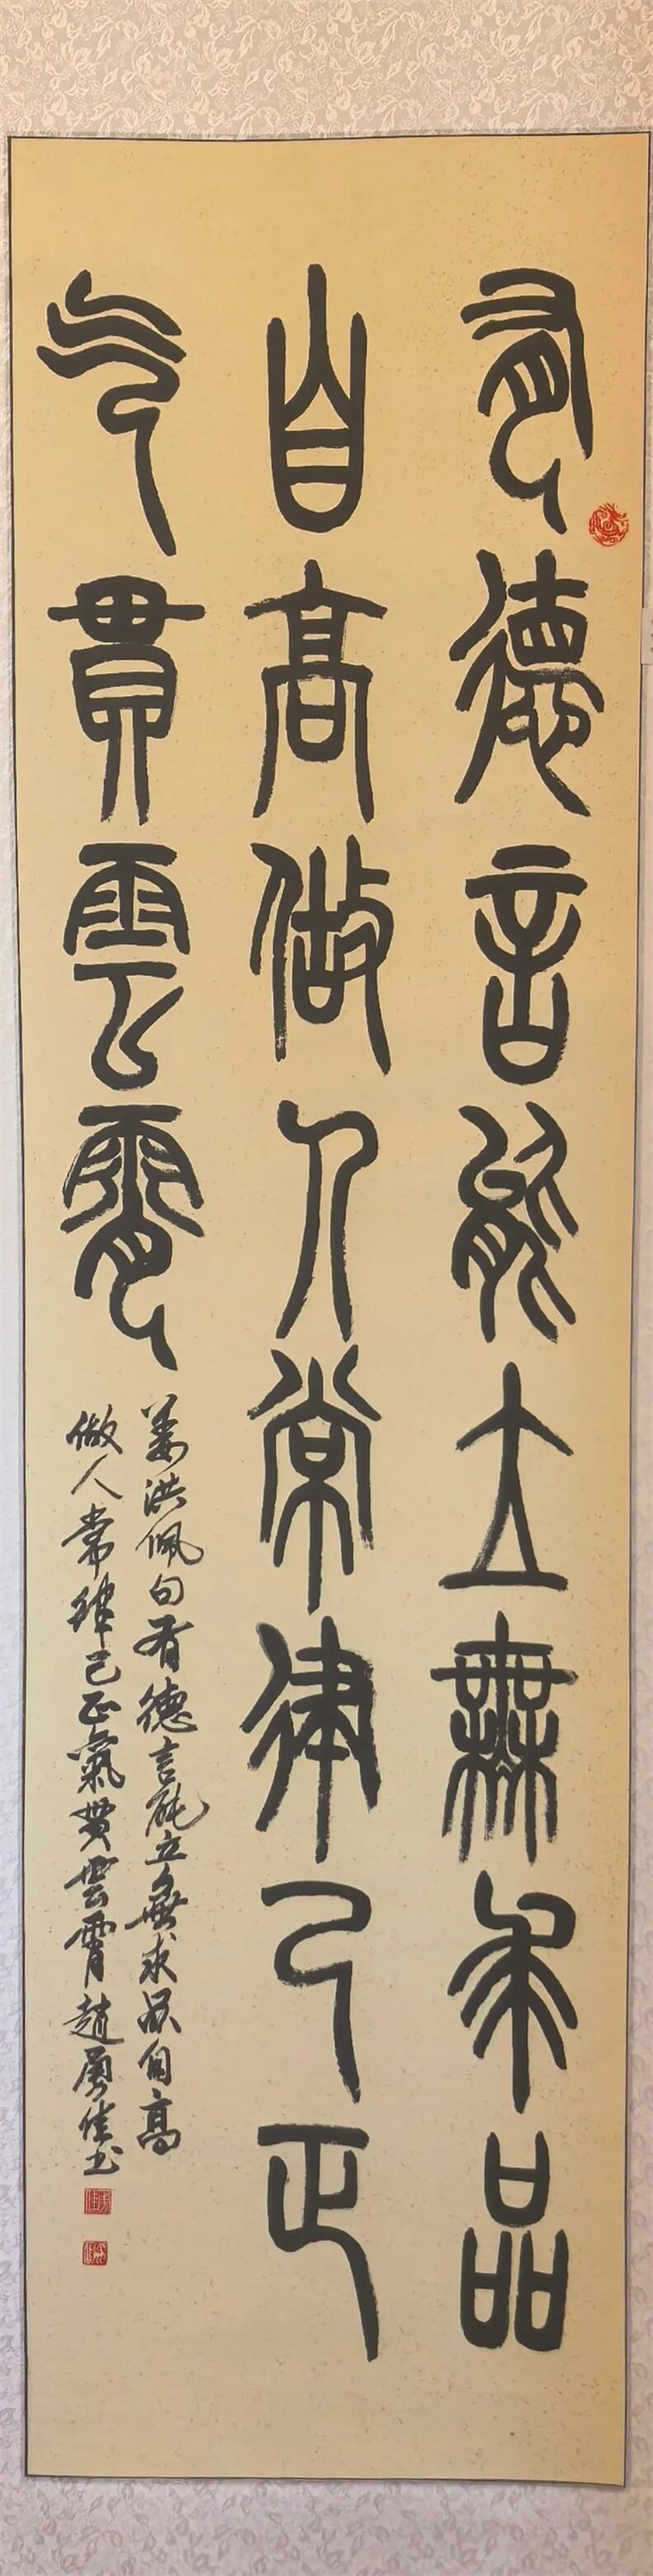 有德言能立無求品
自高做人常律己正
气貫雲霄
姜洪佩句有德言能立無求品自高
做人常律己正氣貫雲霄趙勇佳书